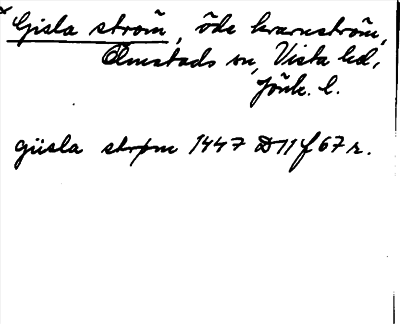 x Gisla strom̄, öde kvarnström,
Ölmstads sn, Vista hd,
Jönk. l.
giisla strøm 1447 D 11 f 67 r.